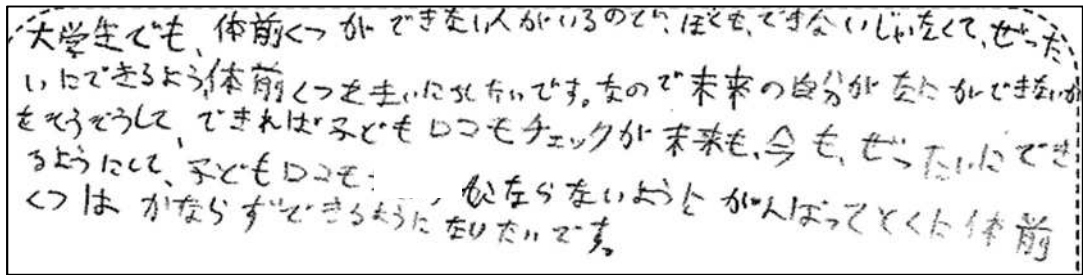 大学生でも、体前くつができない人がいるので、ぼくも、できないじゃなくて、ぜった
いにできるよう体前くつをまいにちしたいです。なので未来の自分がなにができないか
をそうぞうして、できれば子どもロコモチェックが未来も、今も、ぜったいにでき
るようにして、子どもロコモ にならないようにがんばってとくに体前
くつはかならずできるようになりたいです。